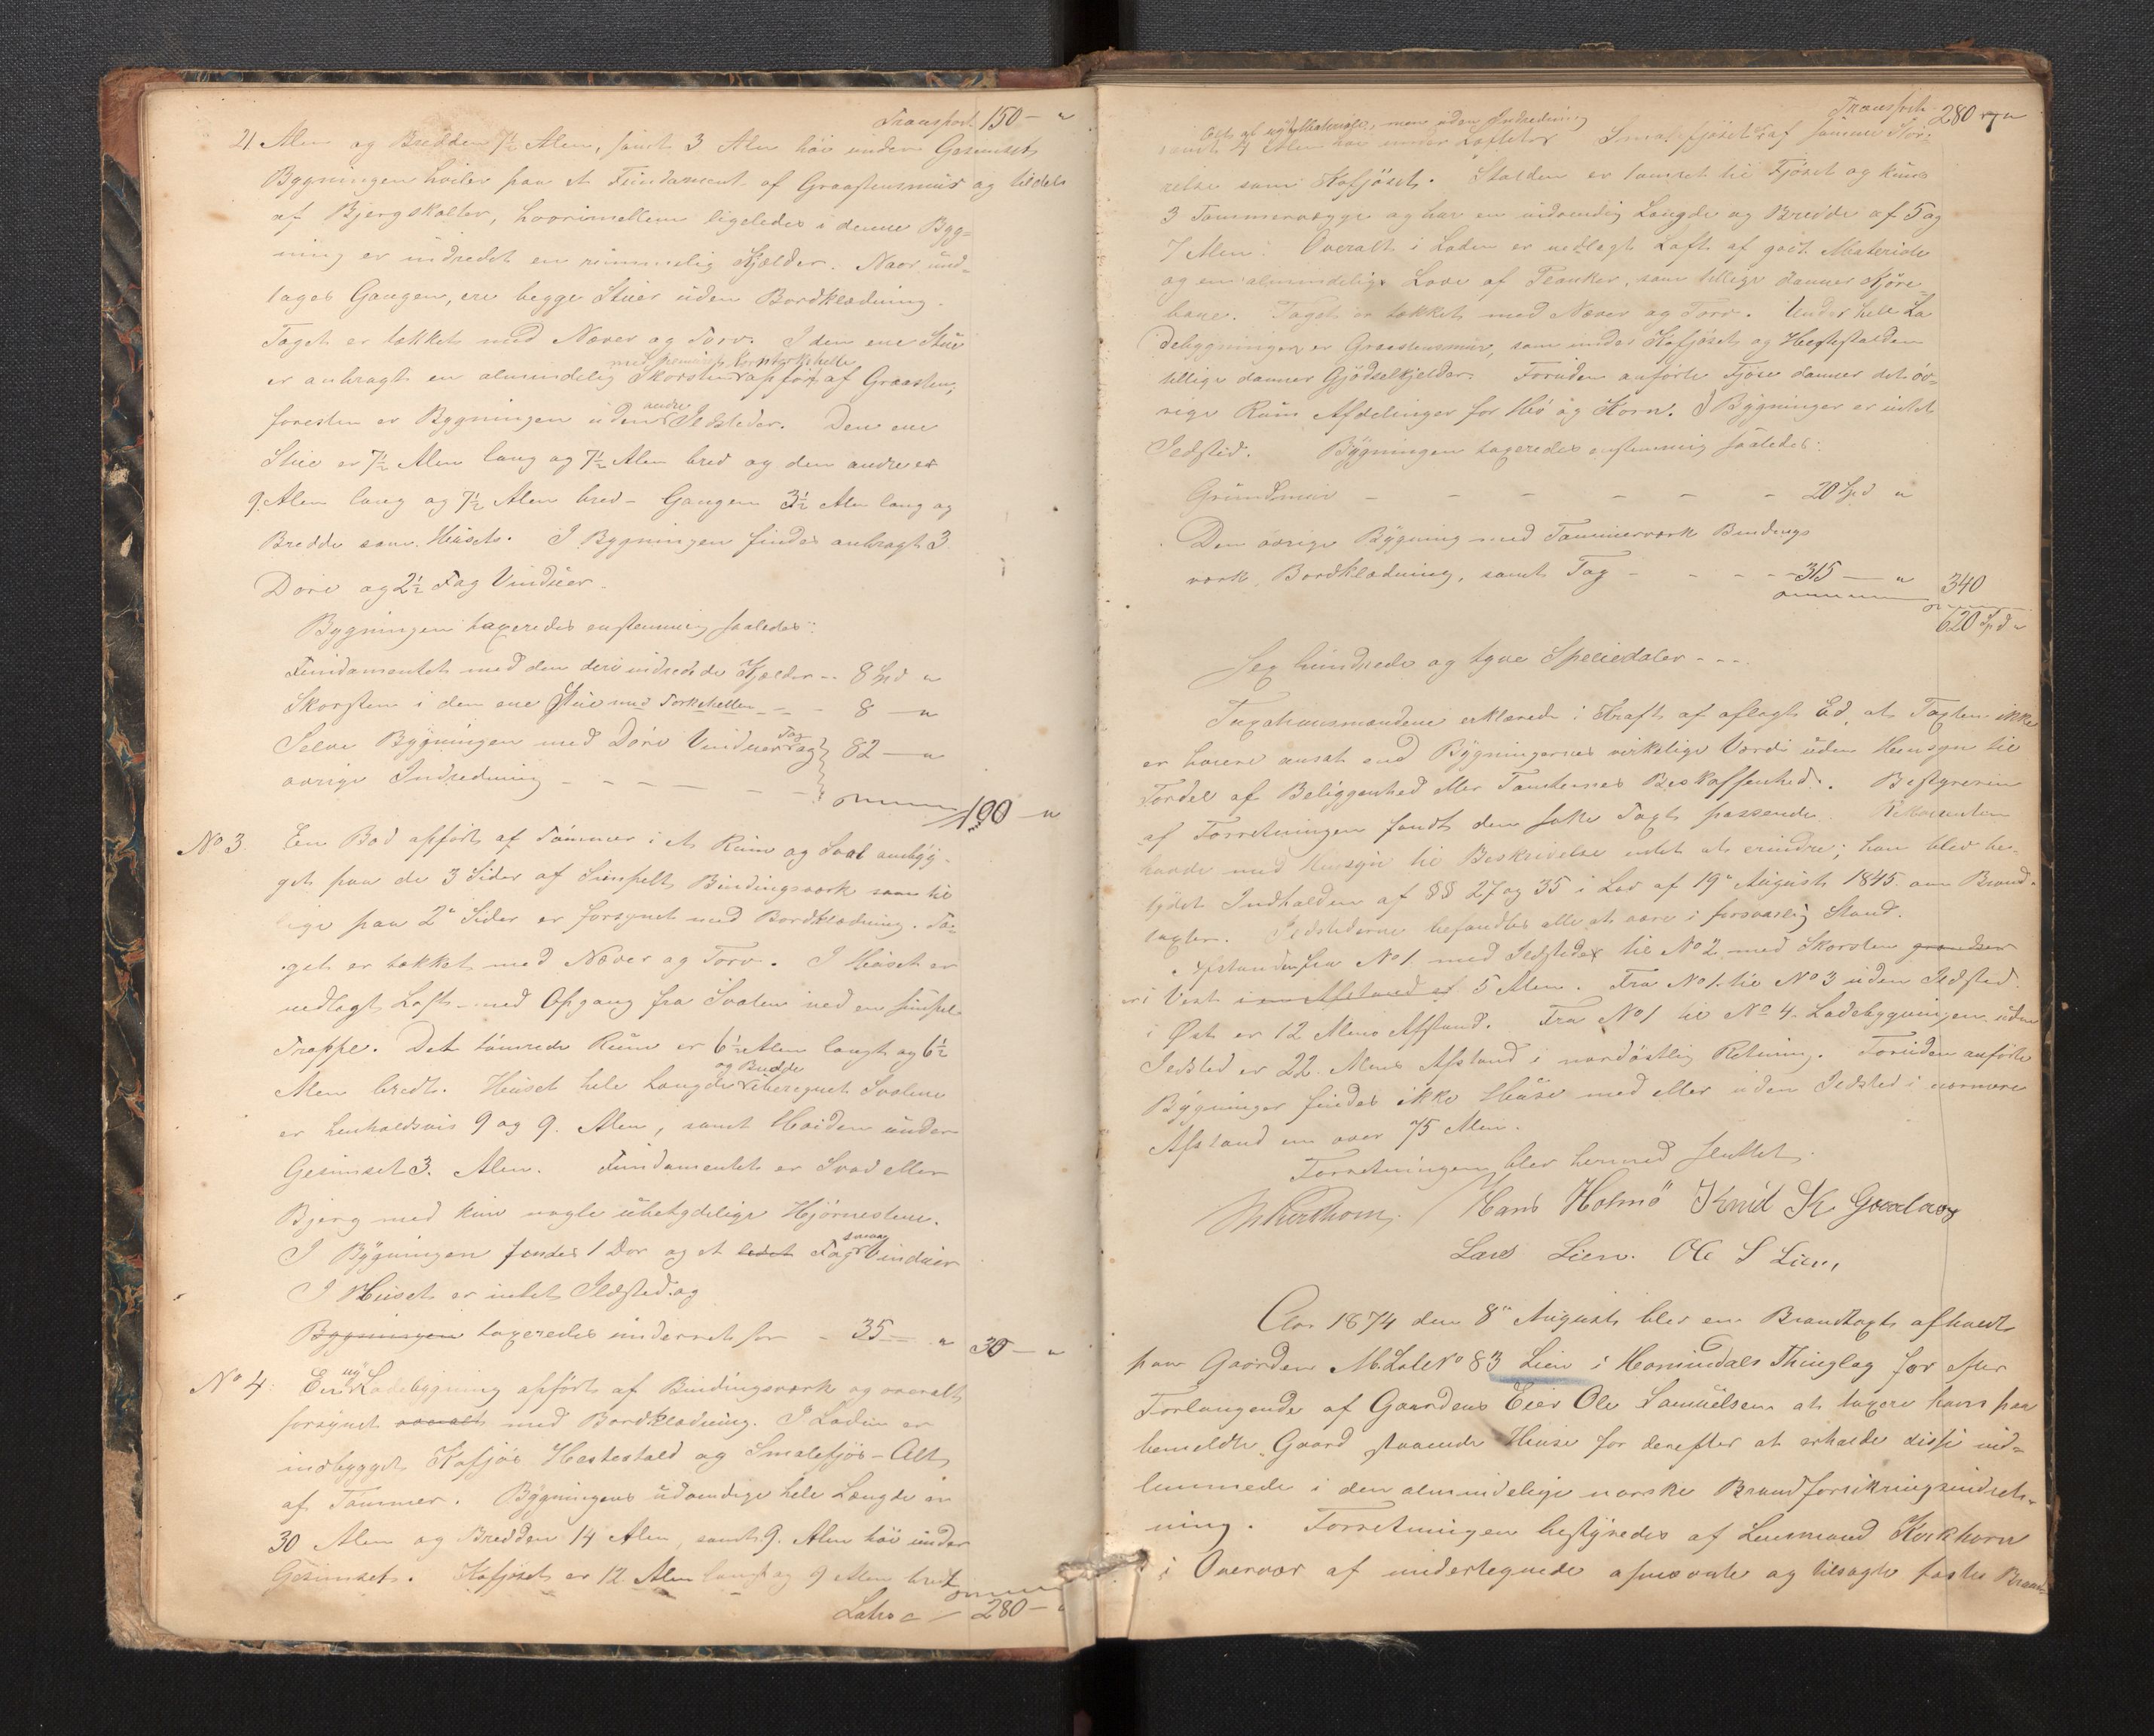 Transport 150 — "
21 Alen og Bredden 7½ Alen, samt 3 Alen høi under Gesimset.
Bygningen hviler paa et Fundament af Graastensmur og tildels
af Bjergskolter, hvorimellem ligeledes i denne Byg=
ning er indredet en rummelig Kjælder. Naar und=
tages Gangen, ere begge Stuer uden Bordklædning.
Taget er tækket med Næver og Torv. I den ene Stue
er anbragt en almindelig Skorsten opført af Graasten,
foresten er Bygningen uden andre Ildsteder. Den ene
Stue er 7½ Alen lang og 7½ Alen bred og den andre er
9 Alen lang og 7½ Alen bred – Gangen 3½ Alen lang og
Bredde som Huset. I Bygningen findes anbragt 3
Döre og 2½ Fag Vinduer.
Bygningen taxeredes enstemmig saaledes:
Fundamentet med den deri indredede Kjælder -- 8 Spd "
Skorsten i den ene Stue med Torkehellen – – 8 — "
Selve Bygningen med Döre Vinduer Tag og } 82 — "
övrige Indredning – – – – –
100 — "
No 3. En Bod opfört af Tömmer i et Rum og Sval ombyg-
get paa de 3 Sider af Simpelt Bindingsværk som til
lige paa 2de Sider er forsynet med Bordklædning. Ta-
get er tækket med Næver og Torv. I Huset er
nedlagt Loft med Opgang fra Svalen ved en simpel
Trappe. Det tömrede Rum er 6½ Alen langt og 6½
Alen bredt. Huset hele Længde og Bredde iberegnet Svalene
er henholdsvis 9 og 9 Alen, samt Høiden under
Gesimset 3 Alen. Fundamentet er Svad eller
Bjerg med kun nogle ubetydelige Hjörnestene.
I Bygningen findes 1 Dor og et lidet Fag smaa Vinduer
I Huset er intet Ildsted og
Bygningen taxeredes underret for – 35 — " 30 — "
No 4. En ny Ladebygning opfört af Bindingsværk og overalt
forsynet overalt med Bordklædning. I Laden er
indbygget Kofjös, Hestestald og Smalefjös – Alt
af Tömmer. Bygningens udvendige hele Længde er
30 Alen og Bredden 14 Alen, samt 9 Alen høi under
Gesimset. Kofjöset er 12 Alen langt og 9 Alen bredt
Latus – 280 — "
Transport 280 — "
Alt af nyt Materiale, men uden Indredning
samt 4 Alen høi under Loftet. Smalefjöset er af samme Stör-
relse som Kofjöset. Stalden er tömret til Fjöset og kun
3 Tömmervægge og har en udvendig Længde og Bredde af 5 og
7 Alen. Overalt i Laden er nedlagt Loft af godt Materiale
og en almindelig Lave af Planker, som tillige danner Kjöre-
bane. Taget er tækket med Næver og Torv. Under hele La
debygningen er Graastensmur, som under Kofjöset og Hestestalden
tillige danner Gjödselkjelder. Foruden anförte Fjöse danner det öv-
rige Rum Afdelinger for Hö og Korn. I Bygningen er intet
Ildsted. Bygningen taxeredes enstemmig saaledes:
Grundmur – – – – – – – 20 Spd "
Den övrige Bygning med Tömmerværk Bindings
værk, Bordklædning, samt Tag – – – – 315 — " 340
620 Spd "
Sex hundrede og tyve Speciedaler ---
Taxationsmændene erklærede i Kraft af aflagt Ed, at Taxten ikke
er höiere ansat end Bygningernes virkelige Værdi uden Hensyn til
Fordel af Beliggenhed eller Tomternes Beskaffenhed. Bestyreren
af Forretningen fandt den satte Taxt passende. Rekvirenten
havde med Hensyn til Beskrivelse intet at erindre; han blev be-
tydet Indholden af §§ 27 og 35 i Lov af 19de August 1845 om Brand-
taxter. Ildstederne befandtes alle at være i forsvarlig Stand.
Afstanden fra No 1 med Ildsteder til No 2 med Skorsten
er i Vest i en Afstand af 5 Alen. Fra No 1 til No 3 uden Ildsted
i Øst er 12 Alens Afstand. Fra No 1 til No 4 Ladebygningen uden
Ildsted er 22 Alens Afstand i nordöstlig Retning. Foruden anförte
Bygninger findes ikke Huse med eller uden Ildsted i nærmere
Afstand en over 75 Alen.
Forretningen blev hermed sluttet.
Kirkhorn. Hans Holmö Knud K
Lars Lien. Ole S Lien,
Aar 1874 den 8de August blev en Brandtaxt afholdt
paa Gaarden M. Lol No 83 Lien i Hornindals Thinglag for efter
Forlangende af Gaardens Eier Ole Samuelsen at taxere hans paa
bemeldte Gaard staaende Huse for derefter at erholde disse ind-
lemmede i den almindelige norske Brandforsikringsindret-
ning. Forretningen bestyredes af Lensmand Kirkhorn
i Overvær af undertegnede opnævnte og tilsagte faste Brand-